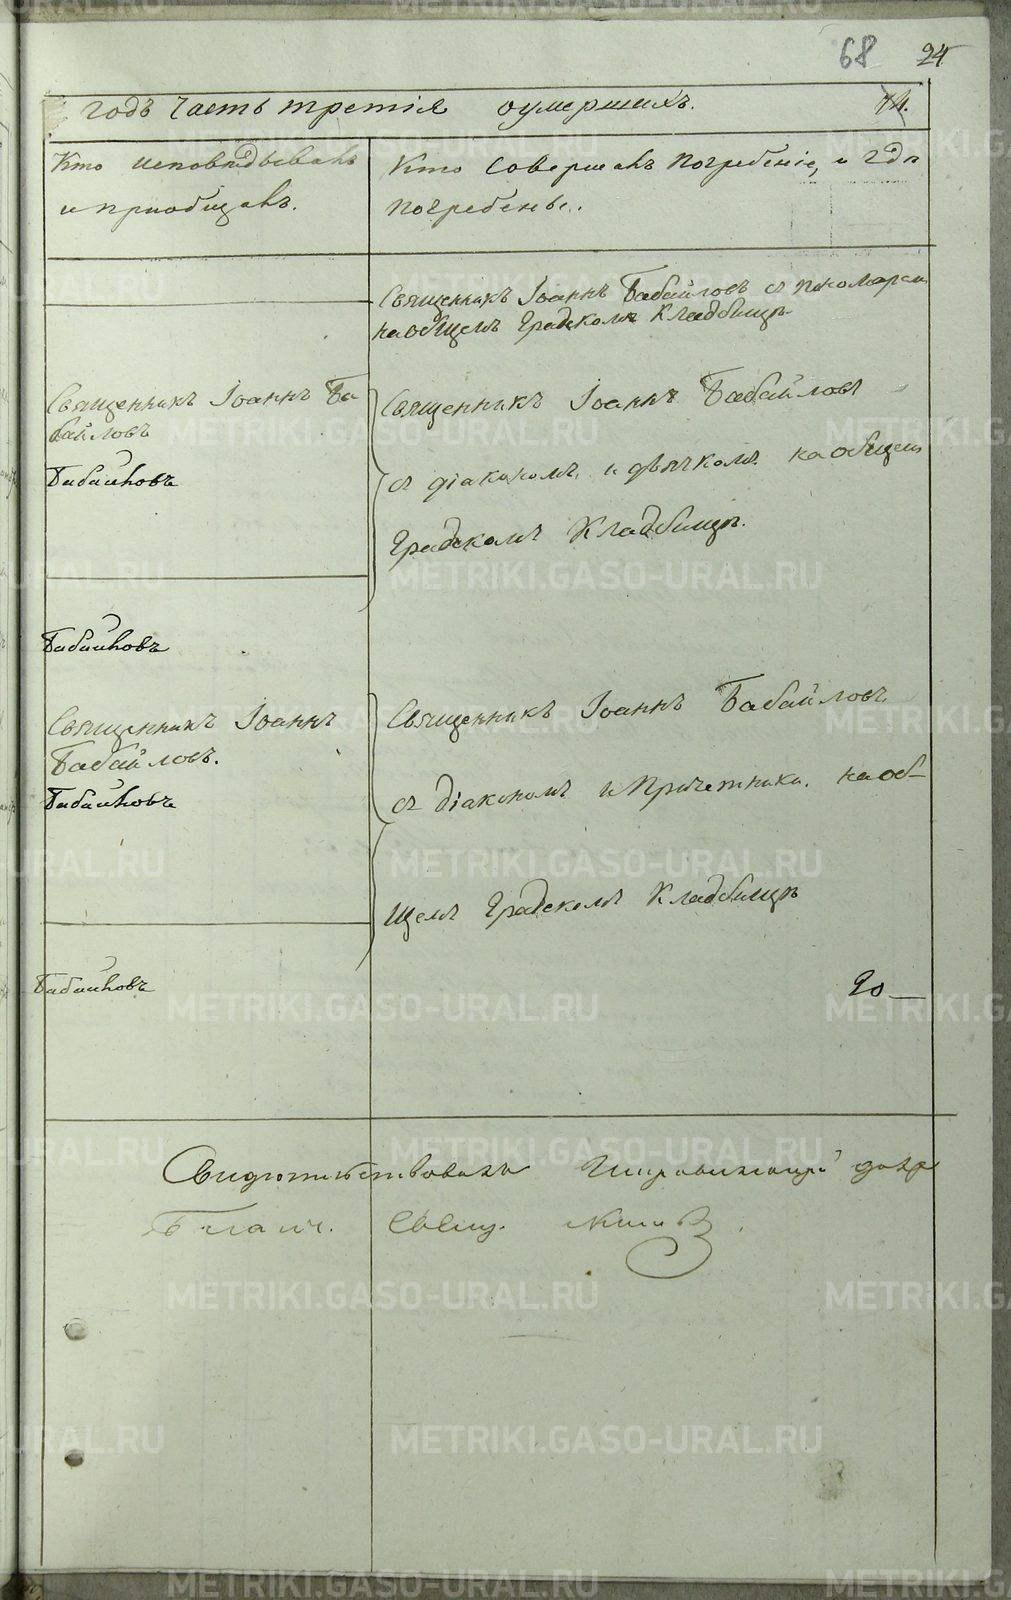 68 24
годъ часть третія оумершихъ. 14.
Кто исповѣдывалъ
и приобщалъ.
Кто совершалъ погребеніе, и гдѣ
погребены.
Священникъ Іоаннъ Бабайловъ съ пономаремъ
на общемъ градскомъ кладбищѣ
Священникъ Іоаннъ Ба
байловъ
Священникъ Іоаннъ Бабайловъ
съ діакономъ и дьячкомъ на общемъ
градскомъ кладбищѣ.
Священникъ Іоаннъ
Бабайловъ.
Священникъ Іоаннъ Бабайловъ
съ діакономъ и причетники. на об-
щемъ градскомъ кладбищѣ
20
Свидѣтельствовалъ
Благоч. Свящ.
METRIKI.GASO-URAL.RU